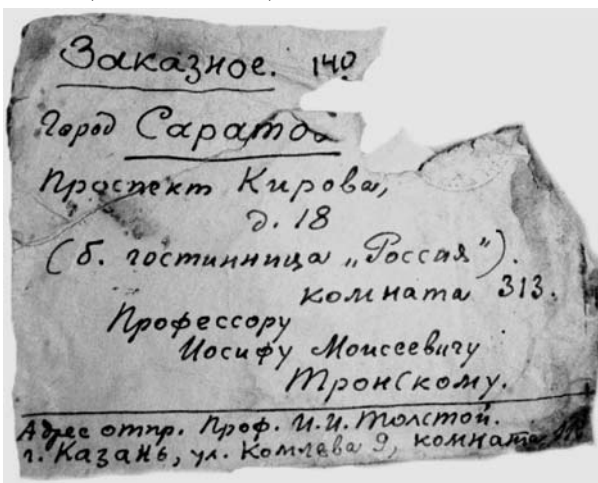 Заказное. 140
Город Саратов
Проспект Кирова,
д. 18
(б. гостинница „Россия").
комната 313.
Профессору
Иосифу Моисеевичу
Тронскому.
Адрес отпр. Проф. И.И. Толстой.
г. Казань, ул. Комлева 9, комната